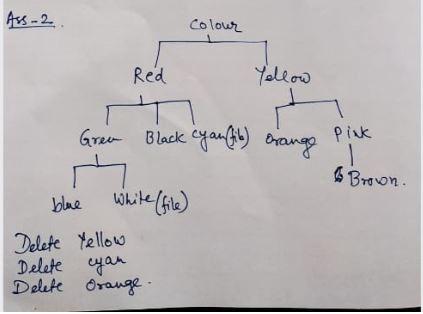 Ass-2.
Colour
Red Yellow
Green Black cyan(file) Orange Pink
blue White(file) Brown.
Delete Yellow
Delete cyan
Delete Orange.